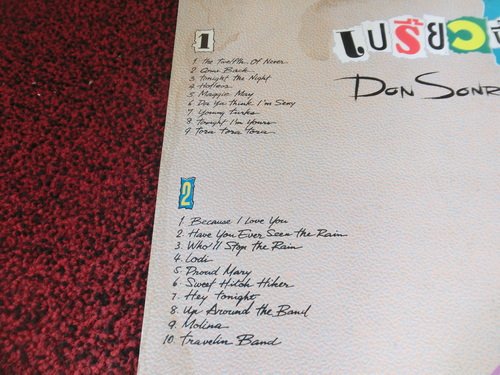 เปรียว
DON SONR
1
1. The Twelfth.. Of Never
2 Come Back
3 Tonight the Night
4 Hotlegs
5 Maggie May
6 Da Ya Think I'm Sexy
7 Young Turks
8 Tonight I'm Yours
9 Tora Tora Tora
2
1 Because I Love You
2. Have You Ever Seen the Rain
3. Who'll Stop the Rain
4. Lodi
5 Proud Mary
6. Sweet Hitch Hiker
7. Hey Tonight
8 Up Around the Band
9. Molina
10. Travelin Band